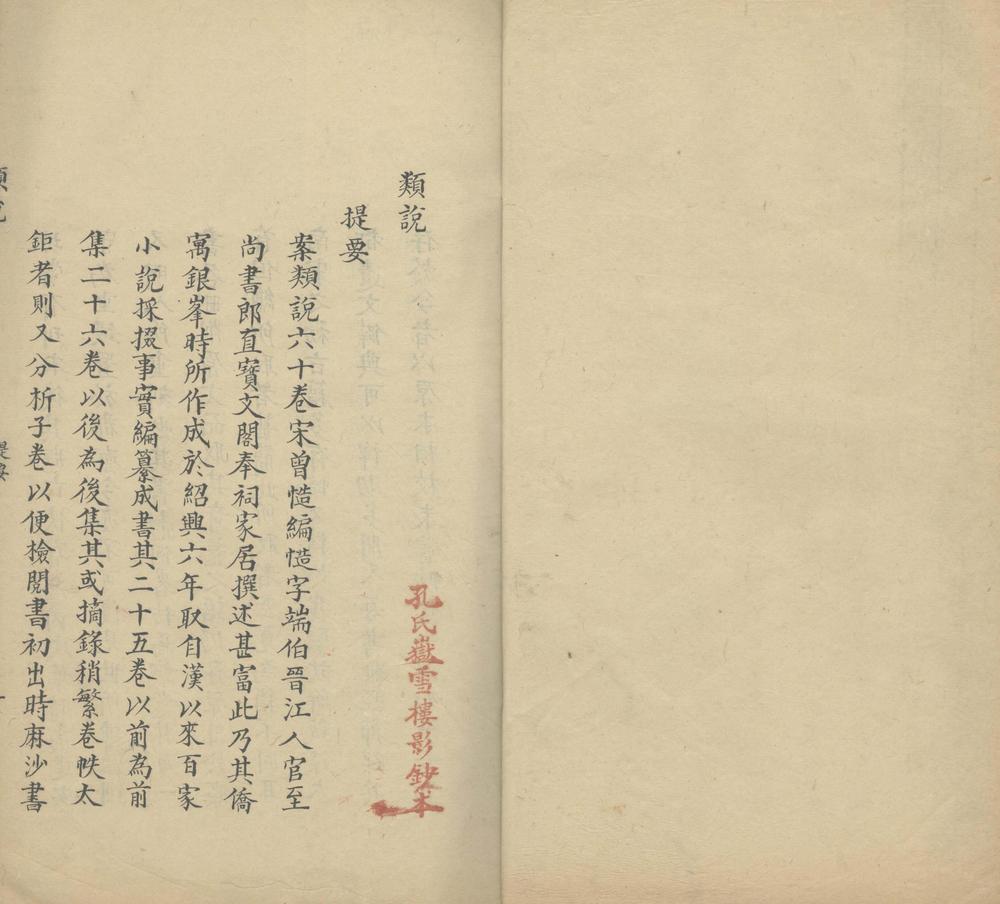 類說
孔氏嶽雪樓影鈔本
提要
案類說六十卷宋曾慥編慥字端伯晉江人官至
尚書郎直寶文閣奉祠家居撰述甚富此乃其僑
寓銀峯時所作成於紹興六年取自漢以來百家
小說採掇事實編纂成書其二十五卷以前為前
集二十六卷以後為後集其或摘錄稍繁卷帙太
鉅者則又分析子卷以便檢閱書初出時麻沙書
類說
提要